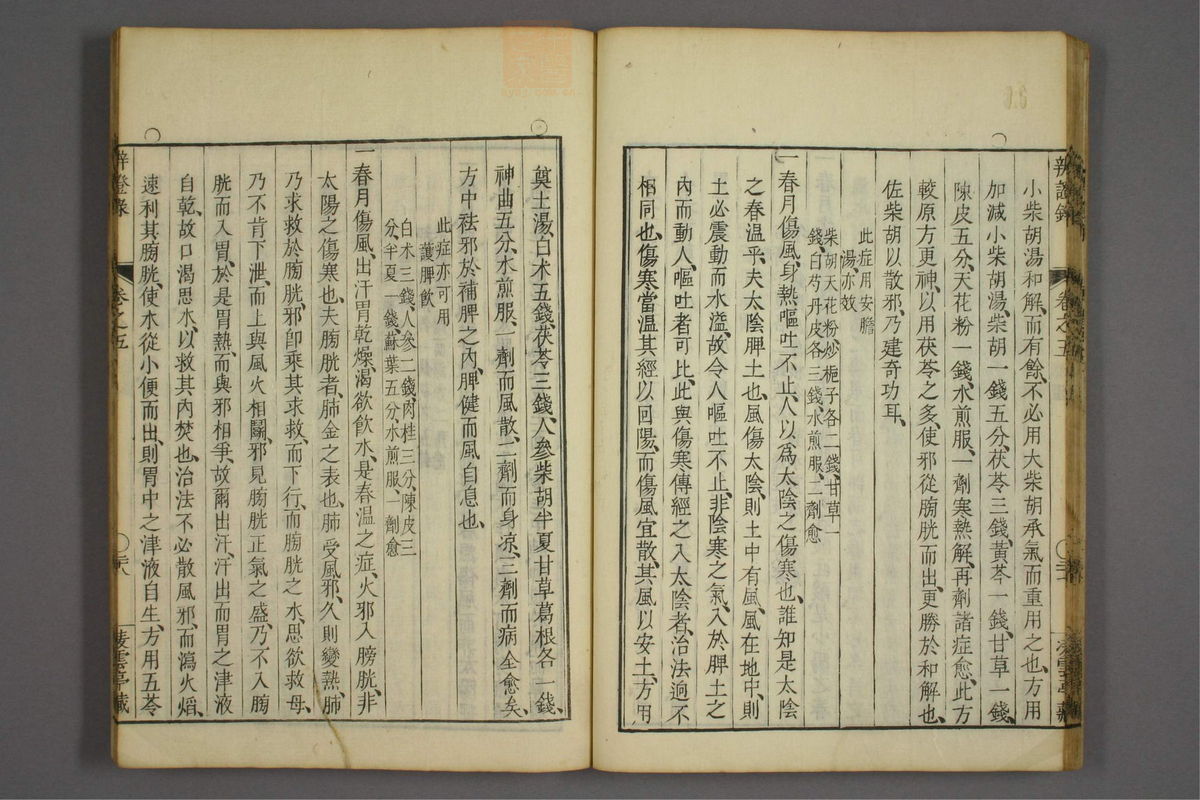 小柴胡湯和解、而有餘、不必用大柴胡承氣而重用之也、方用
加減小柴胡湯、柴胡一錢五分、茯苓三錢、黃芩一錢、甘草一錢、
陳皮五分、天花粉一錢、水煎服、一劑寒熱解、再劑諸症愈、此方
較原方更神、以用茯苓之多、使邪從膀胱而出、更勝於和解也、
佐柴胡以散邪、乃建奇功耳、
此症用安膽
湯亦效
柴胡天花粉炒梔子各二錢、甘草一
錢、白芍丹皮各三錢、水煎服、二劑愈
一春月傷風、身熱嘔吐不止、人以爲太陰之傷寒也、誰知是太陰
之春溫乎、夫太陰脾土也、風傷太陰、則土中有風、風在地中、則
土必震動而水溢、故令人嘔吐不止、非陰寒之氣、入於脾土之
內而動人、嘔吐者可比、此與傷寒傳經之入太陰者、治法迥不
相同也、傷寒當溫其經以回陽、而傷風宜散、其風以安土、方用
辨證錄
卷之五
奠土湯、白朮五錢、茯苓三錢、人參柴胡半夏甘草葛根各一錢、
神曲五分、水煎服、一劑而風散、二劑而身涼、三劑而病全愈矣、
方中祛邪於補脾之內、脾健而風自息也、
此症亦可用
護脾飲
白朮三錢、人參二錢、肉桂三分、陳皮三
分、半夏一錢、蘇葉五分、水煎服、一劑愈
一春月傷風、出汗胃乾燥、渴欲飲水、是春溫之症、火邪入膀胱、非
太陽之傷寒也、夫膀胱者、肺金之表也、肺受風邪、久則變熱、肺
乃求救於膀胱、邪卽乘其求救、而下行、而膀胱之水、思欲救母、
乃不肯下泄、而上與風火相鬬、邪見膀胱正氣之盛、乃不入膀
胱而入胃、於是胃熱、而與邪相爭、故爾出汗、汗出而胃之津液
自乾、故口渴思水、以救其內焚也、治法不必散風邪、而瀉火熖、
速利其膀胱、使水從小便而出、則胃中之津液自生、方用五苓
辨證錄
卷之五
〇六
凌雲亭藏